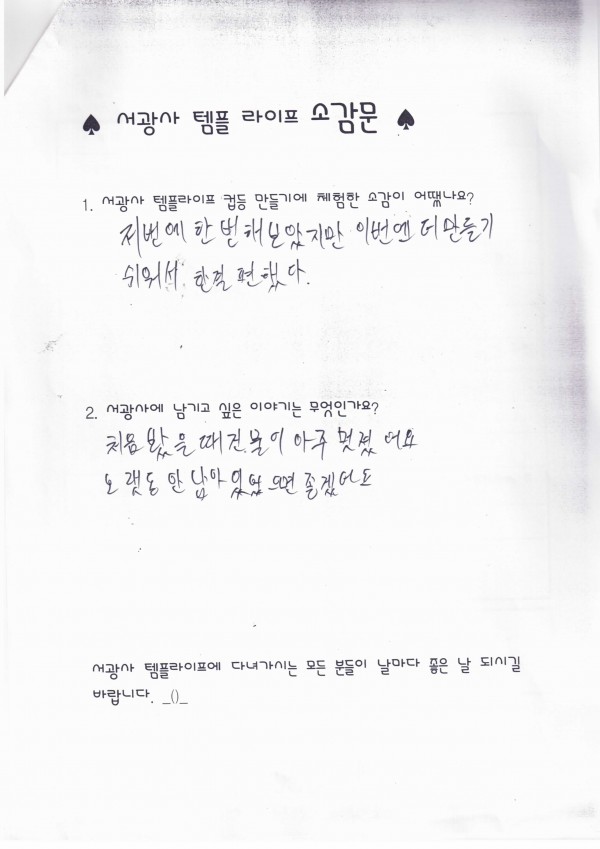 ♠ 서광사 템플 라이프 소감문 ♠
1. 서광사 템플라이프 컵등 만들기에 체험한 소감이 어땠나요?
저번에 한번 해보았지만 이번엔 더 만들기
쉬워서 한결 편했다.
2. 서광사에 남기고 싶은 이야기는 무엇인가요?
처음 봤을 때 건물이 아주 멋졌어요
오랫동안 남아있었으면 좋겠어요
서광사 템플라이프에 다녀가시는 모든 분들이 날마다 좋은 날 되시길
바랍니다. _()_